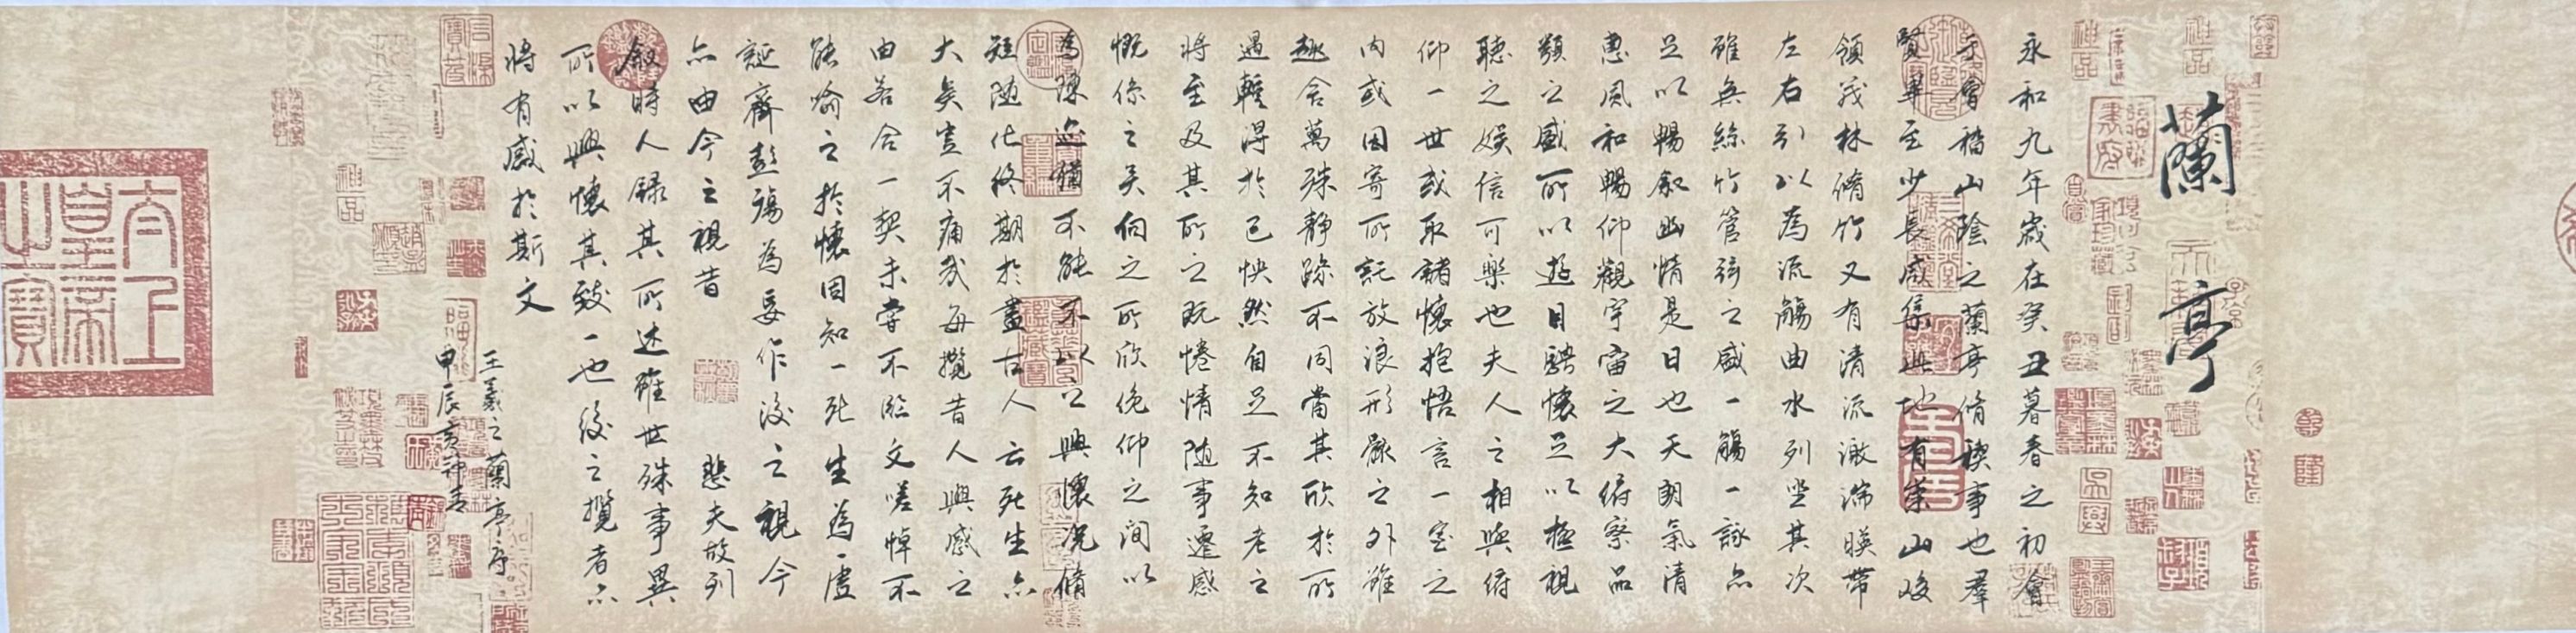 蘭亭
永和九年歲在癸丑暮春之初會
于會稽山陰之蘭亭脩稧事也羣
賢畢至少長咸集此地有崇山峻
領茂林脩竹又有清流激湍暎帶
左右引以為流觴曲水列坐其次
雖無絲竹管弦之盛一觴一詠亦
足以暢叙幽情是日也天朗氣清
惠風和暢仰觀宇宙之大俯察品
類之盛所以遊目騁懷足以極視
聽之娛信可樂也夫人之相與俯
仰一世或取諸懷抱悟言一室之
內或因寄所託放浪形骸之外雖
趣舍萬殊靜躁不同當其欣於所
遇蹔得於己怏然自足不知老之
將至及其所之既惓情隨事遷感
慨係之矣向之所欣俛仰之間以
為陳迹猶不能不以之興懷況脩
短隨化終期於盡古人云死生亦
大矣豈不痛哉每攬昔人興感之
由若合一契未嘗不臨文嗟悼不
能喻之於懷固知一死生為虛
誕齊彭殤為妄作後之視今
亦由今之視昔 悲夫故列
叙時人錄其所述雖世殊事異
所以興懷其致一也後之攬者亦
將有感於斯文
王羲之蘭亭序
甲辰
太上皇帝之寶